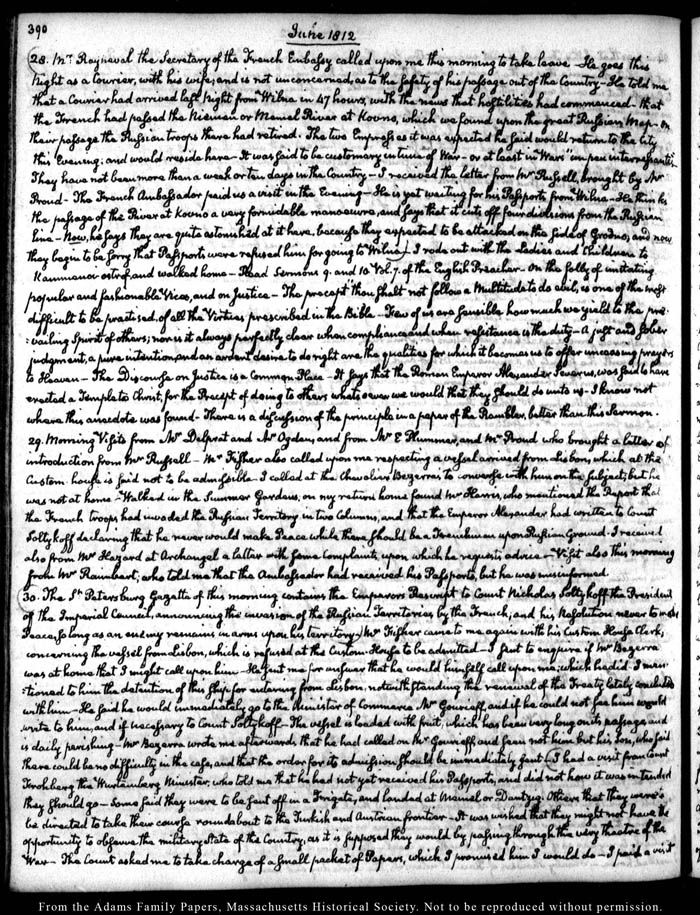 390
June 1812
28. Mr. Rayneval the Secretary of the French Embassy called upon me this morning to take leave — He goes this
Night as a Courier, with his wife; and is not unconcerned, as to the safety of his passage out of the Country — He told me
that a Courier had arrived last Night from Wilna in 47 hours, with the news that hostilities had commenced — that
the French had passed the Niemen or Memel River at Kovno, which we found upon the great Russian Map — on
their passage the Russian troops there had retired. The two Empresses it was expected he said would return to the City
this Evening; and would reside here — It was said to be customary in time of War — or at least in Wars
They have not been more than a week or ten days in the Country — I received the letter from Mr Russell, brought by Mr
Proud — The French Ambassador paid us a visit in the Evening — He is yet waiting for his Passports from Wilna — He thinks
the passage of the River at Kovno a very formidable manoeuvre, and says that it cuts off four divisions from the Russian
line — Now, he says they are quite astonished at it here, because they expected to be attacked on the side of Grodno; and now
they begin to be sorry that Passports were refused him for going to Wilna — I rode out with the Ladies and Children to
Kammenoi ostrof, and walked home — Read Sermons 9. and 10. Vol. 7. of the English Preacher — On the folly of imitating
popular and fashionable Vices, and on Justice — The precept thou shalt not follow a Multitude to do evil, is one of the most
difficult to be practised, of all the Virtues prescribed in the Bible — Few of us are sensible how much we yield to the pre-
vailing Spirit of others; nor is it always perfectly clear when compliance, and when resistance is the duty — A just and sober
judgment, a pure intention, and an ardent desire to do right are the qualities for which it becomes us to offer unceasing prayers
to Heaven — The Discourse on Justice is a Common Place — It says that the Roman Emperor Alexander Severus, was said to have
erected a Temple to Christ, for the Precept of doing to others whatsoever we would that they should do unto us — I know not
where this anecdote was found — There is a discussion of the principle in a paper of the Rambler, better than this Sermon.
29. Morning Visits from Mr Delprat and Mr Ogden, and from Mr E Plummer, and Mr Proud who brought a letter of
introduction from Mr Russell — Mr Fisher also called upon me respecting a vessel arrived from Lisbon, which at the
Custom-house is said not to be admissible — I called at the Chevalier Bezerra's to converse with him on the subject; but he
was not at home — Walked in the Summer Gardens, on my return home found Mr Harris, who mentioned the Report that
the French troops had invaded the Russian Territory in two Columns, and that the Emperor Alexander had written to Count
Soltykoff declaring that he never would make Peace while there should be a Frenchman upon Russian Ground — I received
also from Mr Hazard at Archangel a letter with some complaints, upon which he requests advice — Visit also this morning
from Mr Raimbert, who told me that the Ambassador had received his Passports, but he was misinformed.
30. The St. Petersburg Gazette of this morning contains the Emperor's Rescript to Count Nicholas Soltykoff the President
of the Imperial Council, announcing the invasion of the Russian Territories by the French, and his Resolution never to make
Peace, so long as an enemy remains in arms upon his territory — Mr Fisher came to me again with his Custom House Clerk,
concerning the vessel from Lisbon, which is refused at the Custom-House to be admitted — I sent to enquire if Mr Bezerra
was at home that I might call upon him — He sent me for answer that he would himself call upon me; which he did. I men-
tioned to him the detention of this ship for entering from Lisbon, notwithstanding the renewal of the Treaty lately concluded
with him — He said he would immediately go to the Minister of Commerce Mr Gourieff, and if he could not see him would
write to him, and if necessary to Count Soltykoff — The vessel is loaded with fruit, which has been very long on its passage, and
is daily perishing — Mr Bezerra wrote me afterwards that he had called on Mr Gourieff, and seen not him but his son, who said
there could be no difficulty in the case, and that the order for its admission should be immediately sent — I had a visit from Count
the Wurtemberg Minister, who told me that he had not yet received his Passports, and did not know it was intended
they should go — Some said they were to be sent off in a Frigate, and landed at Memel or Dantzig; Others that they were to
be directed to take their course roundabout to the Turkish and Austrian frontier — It was wished that they might not have the
opportunity to observe the military State of the Country, as it is supposed they would by passing through the very theatre of the
War — The Count asked me to take charge of a small packet of Papers, which I promised him I would do — I paid a visit
From the Adams Family Papers, Massachusetts Historical Society. Not to be reproduced without permission.